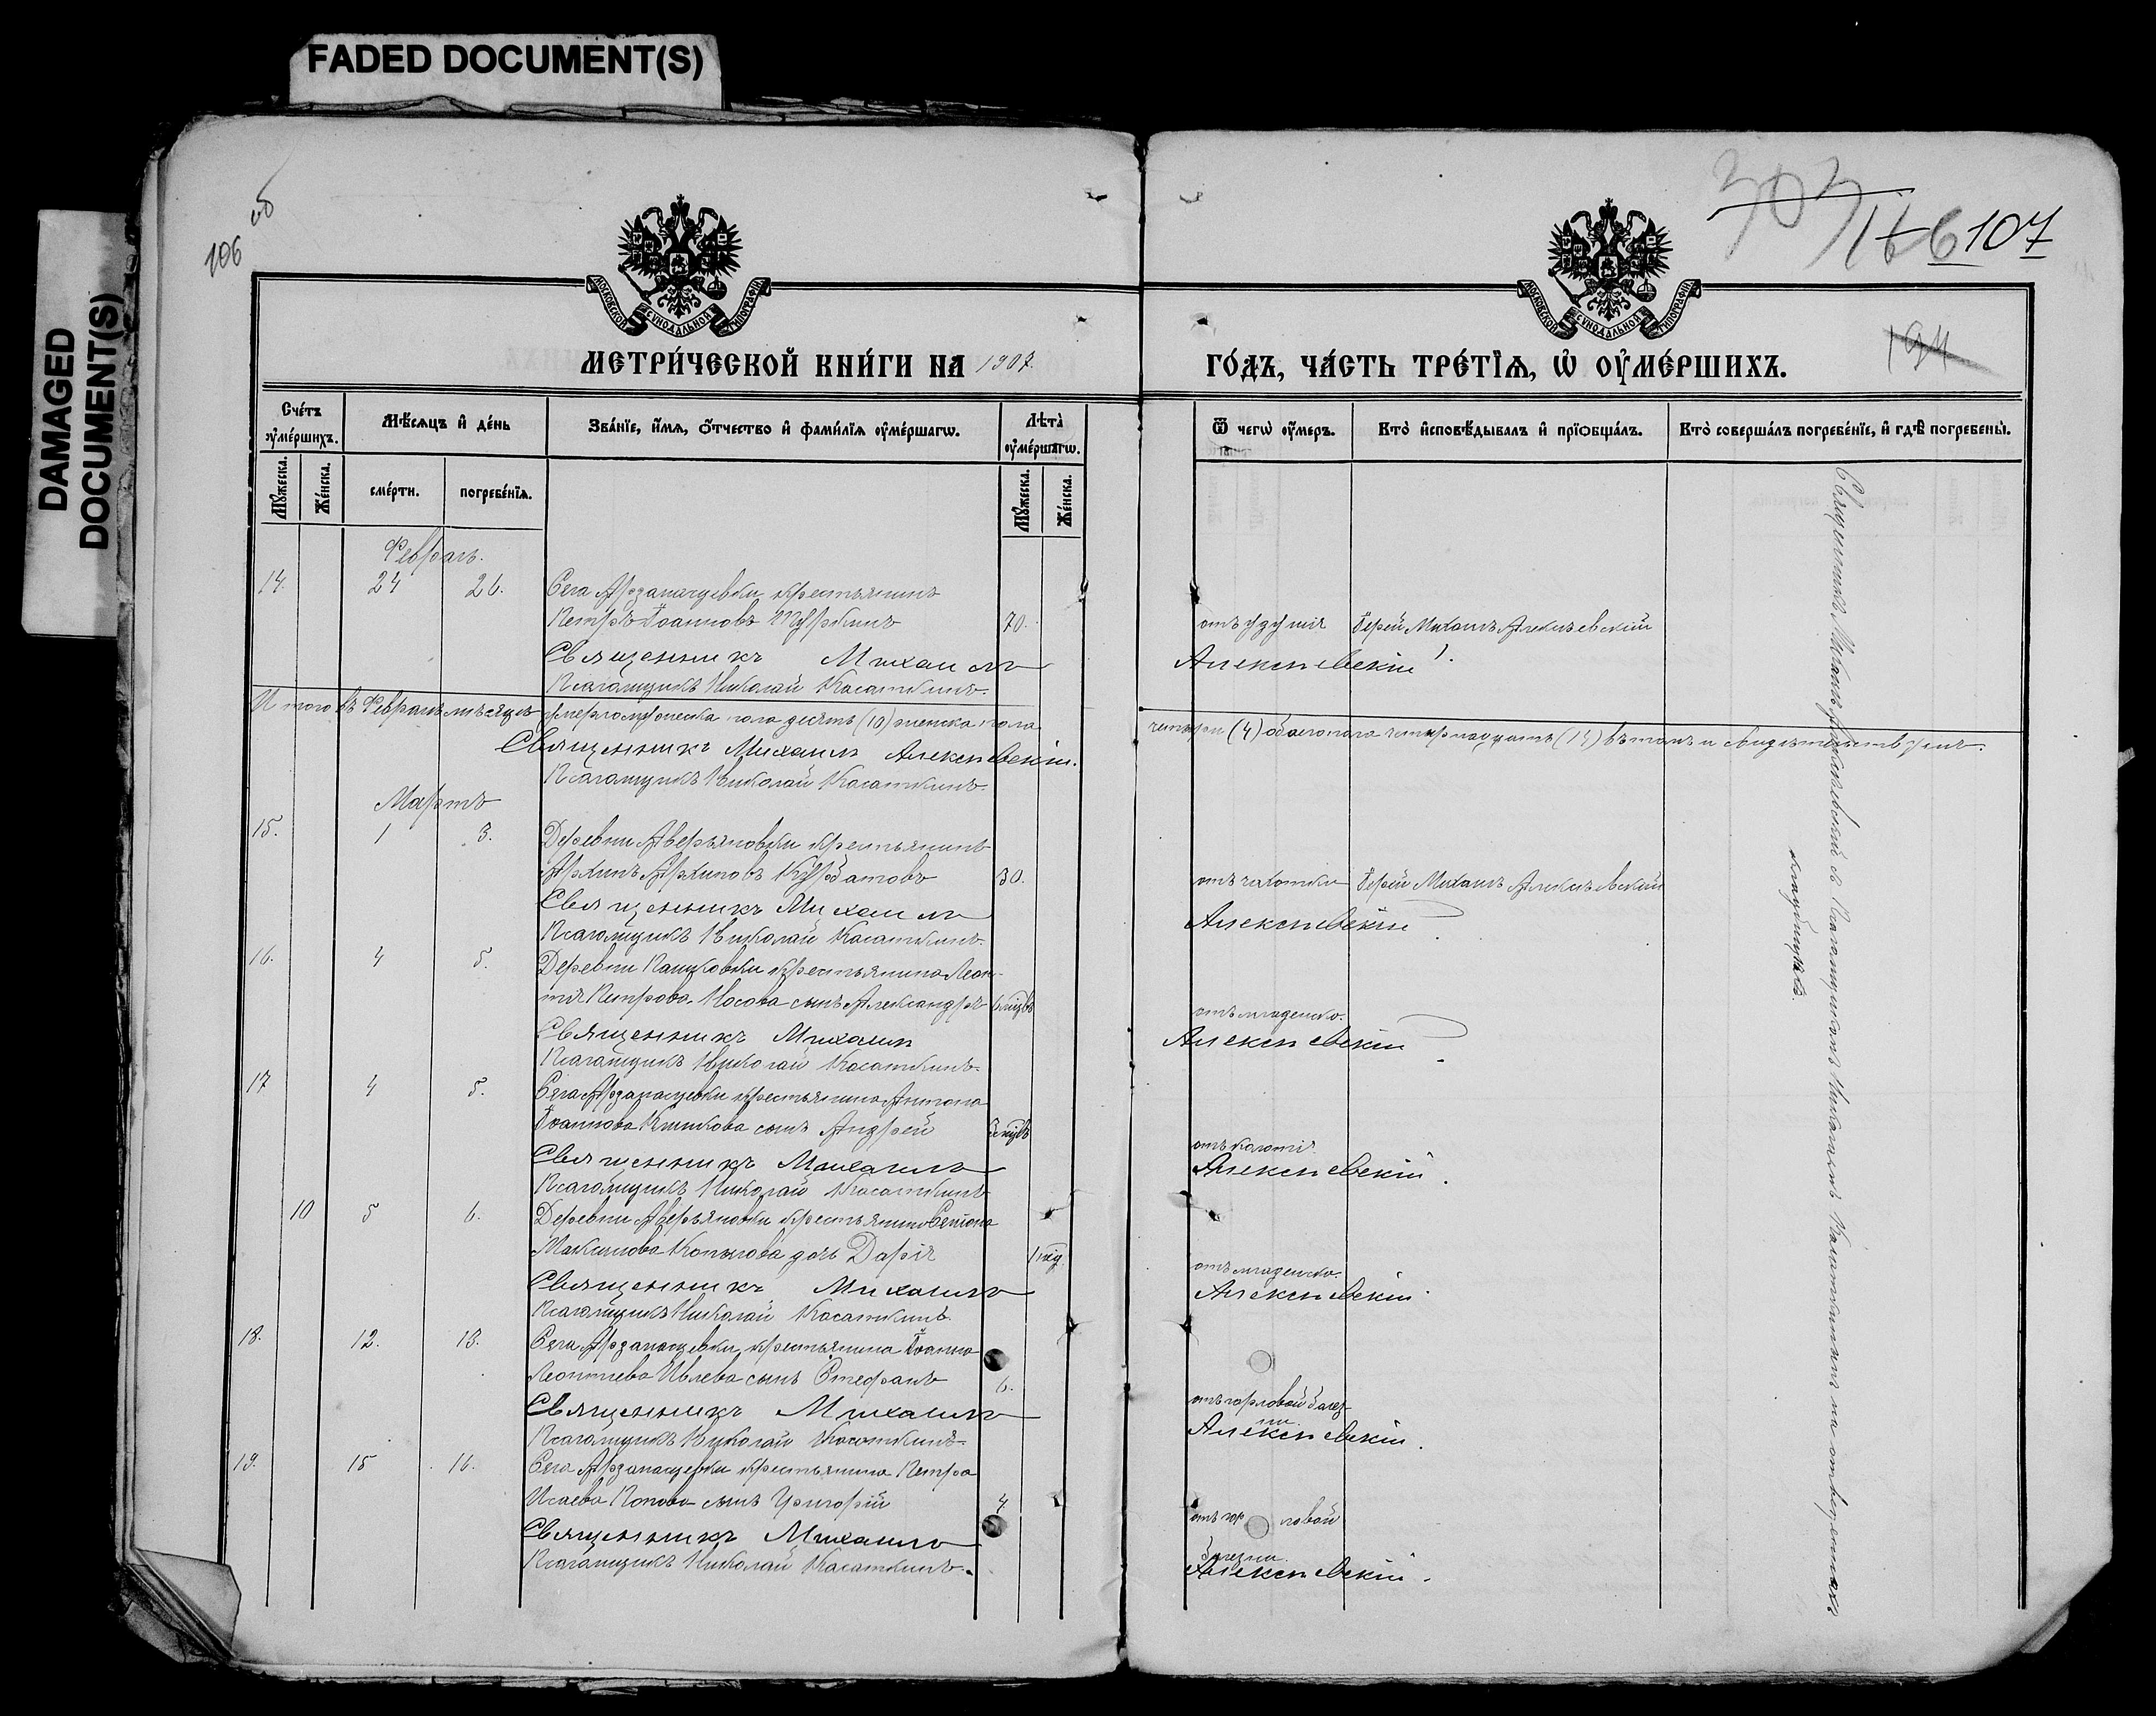 FADED DOCUMENT(S)
DAMAGED
DOCUMENT(S)
106 об
303
166 107
194
МОСКОВСКОЙ СѴНОДАЛЬНОЙ ТИПОГРАФІИ
МОСКОВСКОЙ СѴНОДАЛЬНОЙ ТИПОГРАФІИ
МЕТРИ́ЧЕСКОЙ КНИ́ГИ НА 1907.
ГО́ДЪ, ЧА́СТЬ ТРЕ́ТІѦ, Ѡ ОУ҆МЕ́РШИХЪ.
Сче́тъ оу҆ме́ршихъ.
Мѣ́сѧцъ и҆ де́нь
Зва́нїе, и҆́мѧ, ѻ҆́тчество и҆ фами́лїѧ оу҆ме́ршагѡ.
Лѣта̀ оу҆ме́ршагѡ.
Ѿ чегѡ̀ оу҆́меръ.
Кто̀ и҆сповѣ́дывалъ и҆ прїѻбща́лъ.
Кто̀ соверша́лъ погребе́нїе, и҆ гдѣ̀ погребены̀.
Мꙋ́жеска.
Же́нска.
сме́рти.
погребе́нїѧ.
Мꙋ́жеска.
Же́нска.
Февраль.
14. 24 26. Села Арзамасцевки крестьянинъ
Петръ Іоанновъ 70. Іерей Михаилъ Алексѣевскій
Священникъ Михаилъ Алексѣевскій.
Псаломщикъ Николай Касаткинъ.
Итого въ Февралѣ мѣсяцѣ умерло мужеска пола десять (10) женска пола
четыре (4) обоего пола четырнадцать (14) въ томъ и свидѣтельствуемъ.
Священникъ Михаилъ Алексѣевскій.
Псаломщикъ Николай Касаткинъ.
Мартъ
15. 1 3. Деревни Аверьяновки крестьянинъ
Архипъ Архиповъ Курбатовъ 30. отъ чахотки Іерей Михаилъ Алексѣевскій
Священникъ Михаилъ Алексѣевскій
Псаломщикъ Николай Касаткинъ.
16. 4 5. Деревни Пашковки крестьянина Леон-
тія Петрова Носова сынъ Александръ отъ младенч.
Священникъ Михаилъ Алексѣевскій
Псаломщикъ Николай Касаткинъ.
17 4 5. Села Арзамасцевки крестьянина Антона
Іоаннова сынъ Андрей
Священникъ Михаилъ Алексѣевскій.
Псаломщикъ Николай Касаткинъ
10 5 6. Деревни Аверьяновки крестьянина
Максимова Копылова дочь Дарія 1 нед. отъ младенч.
Священникъ Михаилъ Алексѣевскій
Псаломщикъ Николай Касаткинъ.
18. 12. 13. Села Арзамасцевки крестьянина Іоанна
Леонтиева Ивлева сынъ Стефанъ 6. отъ горловой болез
ни.
Священникъ Михаилъ Алексѣевскій.
Псаломщикъ Николай Касаткинъ.
19. 15 16. Села Арзамасцевки крестьянина Петра
Исаева Попова сынъ Григорій 4 отъ гор ловой
болезни.
Священникъ Михаилъ Алексѣевскій.
Псаломщикъ Николай Касаткинъ.
Священникъ Михаилъ Алексѣевскій съ Псаломщикомъ Николаемъ Касаткинымъ на отведенномъ
кладбищѣ.